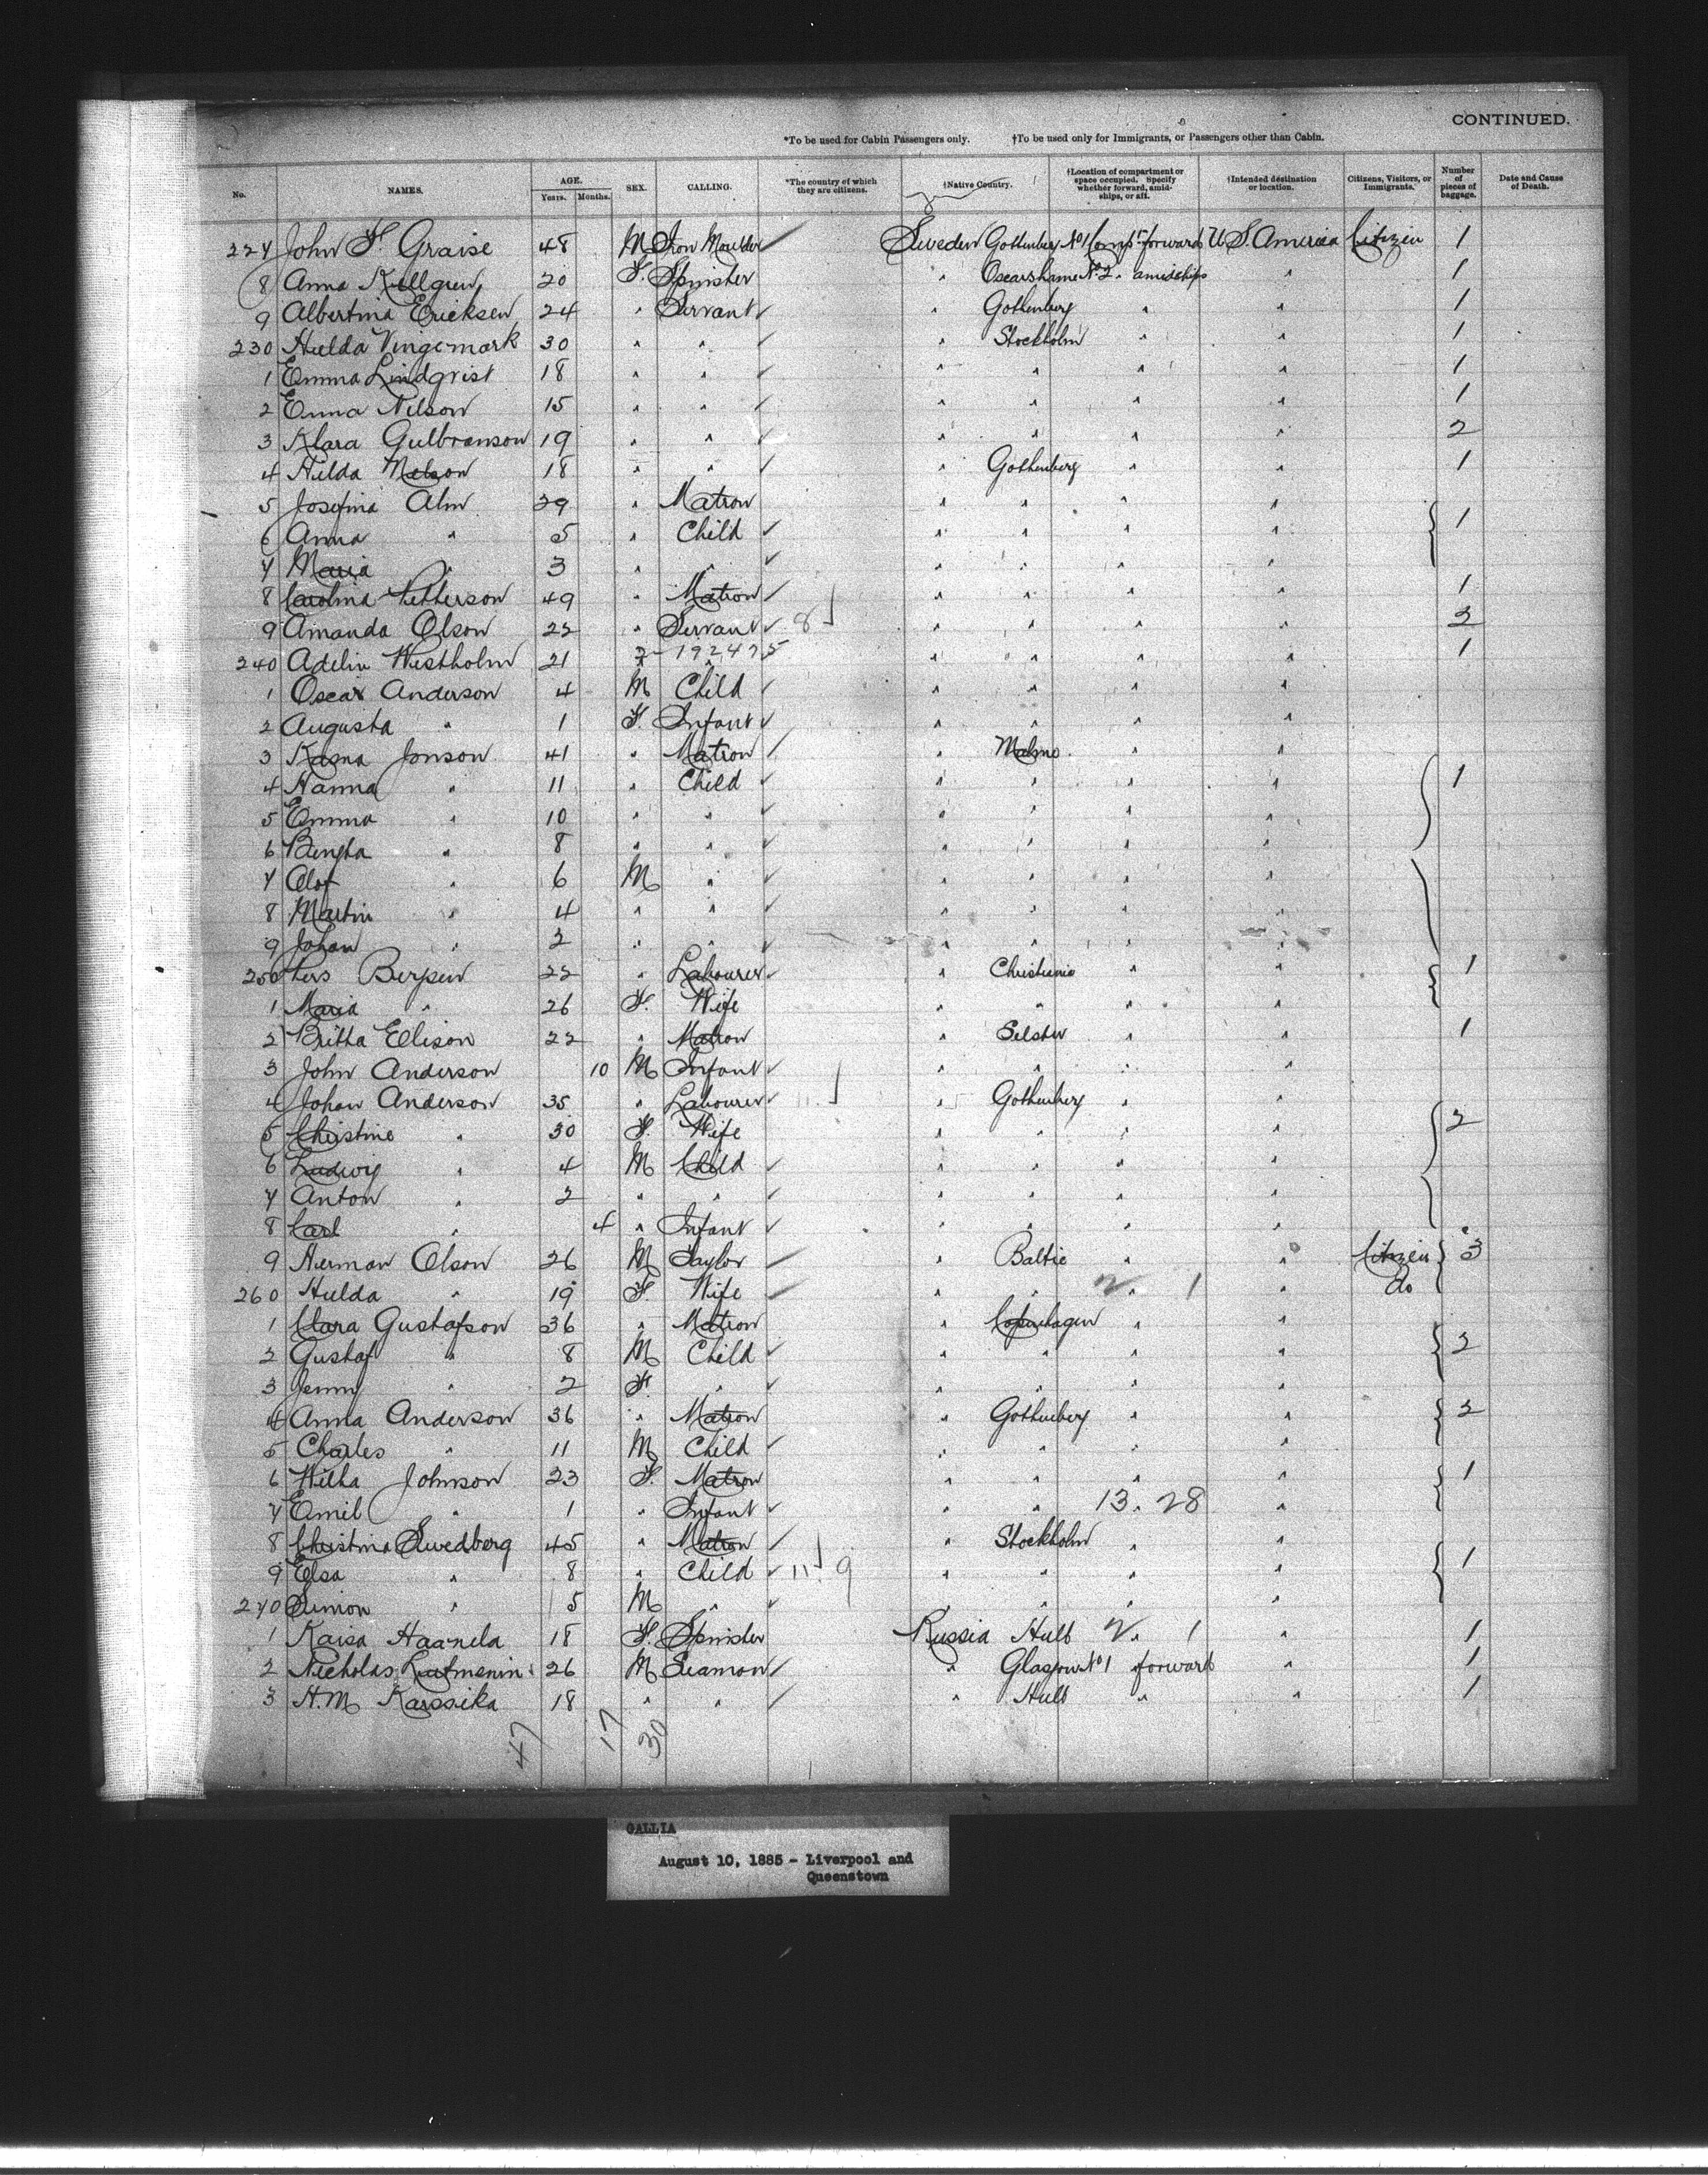 CONTINUED.
*To be used for Cabin Passengers only. †To be used only for Immigrants, or Passengers other than Cabin.
No. NAMES. AGE. Years. Months. SEX. CALLING. *The country of which they are citizens. †Native Country. †Location of compartment or space occupied. Specify whether forward, amidships, or aft. †Intended destination or location. Citizens, Visitors, or Immigrants. Number of pieces of baggage. Date and Cause of Death.
227 John F. Graise 48 M Iron Moulder Sweden Gothenberg No 1 Compt forward U.S. America Citizen 1
8 Anna Kullgren 20 F. Spinster " Oscarshame No 2 " amidships " 1
9 Albertina Ericksen 24 " Servant " Gothenberg " " 1
230 Hulda Vingemark 30 " " " Stockholm " " 1
1 Emma Lindqvist 18 " " " " " " 1
2 Emma Nilson 15 " " " " " " 1
3 Klara Gulbranson 19 " " " " " " 2
4 Hilda Nelson 18 " " " Gothenberg " " 1
5 Josefina Alm 29 " Matron " " " "
6 Anna " 5 " Child " " " " 1
7 Maria " 3 " " " " " "
8 Carolina Petterson 49 " Matron " " " " 1
9 Amanda Olson 22 " Servant 8 " " " " 2
240 Adelin Westholm 21 2-192475 " " " " 1
1 Oscar Anderson 4 M Child " " " "
2 Augusta " 1 F. Infant " " " "
3 Karna Jonson 41 " Matron " Malmo " "
4 Hanna " 11 " Child " " " " 1
5 Emma " 10 " " " " " "
6 Bengta " 8 " " " " " "
7 Olof " 6 M " " " " "
8 Martin " 4 " " " " " "
9 Johan " 2 " " " " " "
250 Pers Bergen 22 " Labourer " Christiania " " 1
1 Maria " 26 F. Wife " " " "
2 Britta Ellison 22 " Matron " " " 1
3 John Anderson 10 M Infant " " " "
4 Johan Anderson 35 " Labourer 11 " Gothenberg " "
5 Christine " 30 F. Wife " " " " 2
6 Ludwig " 4 M Child " " " "
7 Anton " 2 " " " " " "
8 Carl " 4 " Infant " " " "
9 Herman Olson 26 M Taylor " Baltic " " Citizen 3
260 Hulda " 19 F. Wife " " 2 " 1 " do
1 Clara Gustafson 36 " Matron " Copenhagen " "
2 Gustaf " 8 M Child " " " " 2
3 Jenny " 2 F. " " " " "
4 Anna Anderson 36 " Matron " Gothenberg " " 2
5 Charles " 11 M Child " " " "
6 Johnson 23 F. Matron " " " " 1
7 Emil " 1 " Infant " " 13 " 28 "
8 Christina Swedberg 45 " Matron " Stockholm " "
9 Elsa " 8 " Child 11 9 " " " " 1
270 Simon " 5 M " " " " "
1 Kaisa Haanela 18 F. Spinster Russia Hull 2 " 1 " 1
2 Nicholas 26 M Seaman " Glasgow No 1 forward " 1
3 H.M. Karssika 18 " " " Hull " " 1
47 17 30
GALLIA
August 10, 1885 - Liverpool and
Queenstown